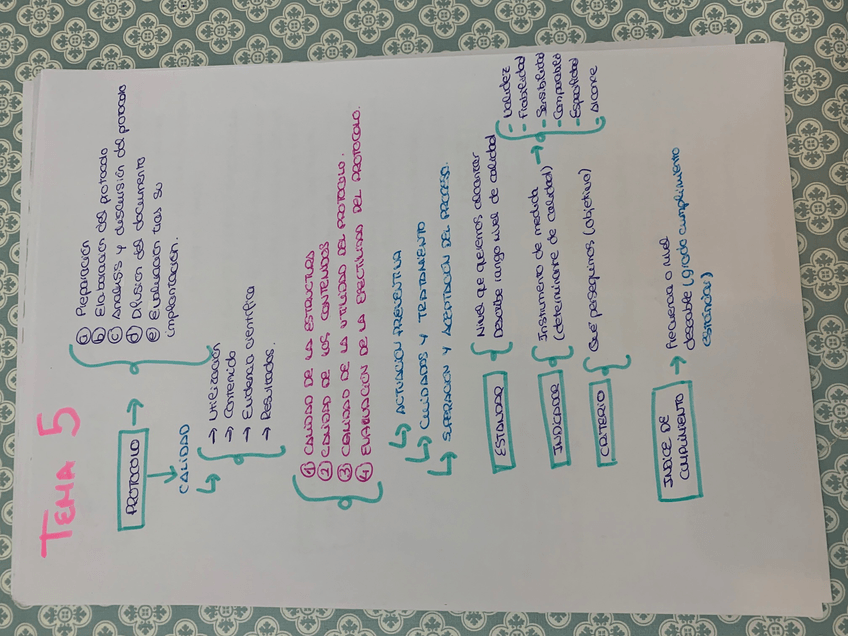 TEMA 5
PROTOCOLO →
a) Preparación
b) Elaboración del protocolo
c) Análisis y discusión del protocolo
d) Difusión del documento
e) Evaluación tras su
implantación.
CALIDAD
→ Utilización
→ Contenido
→ Evidencia científica
→ Resultados.
1 CALIDAD DE LA ESTRUCTURA
2 CALIDAD DE LOS CONTENIDOS
3 CALIDAD DE LA UTILIDAD DEL PROTOCOLO.
4 EVALUACIÓN DE LA EFECTIVIDAD DEL PROTOCOLO.
↳ ACTUACIÓN PREVENTIVA
↳ CUIDADOS Y TRATAMIENTO
↳ SUPERACIÓN Y ACEPTACIÓN DEL PROCESO.
ESTANDAR
Nivel que queremos alcanzar
Describe rango nivel de calidad
INDICADOR
Instrumento de medida →
(determinante de calidad)
- Validez
- Fiabilidad
- Sensibilidad
- Comparable
- Especificidad
- Alcance
CRITERIO
Qué perseguimos (objetivo)
INDICE DE
CUMPLIMIENTO
→ Frecuencia o nivel
deseable (grado cumplimiento
estándar)